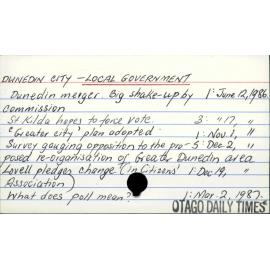 DUNEDIN CITY - LOCAL GOVERNMENT
Dunedin merger. Big shake-up by 1: June 12, 1986.
commission
St Kilda hopes to force vote. 3: " 17, "
'Greater city' plan adopted. 1: Nov. 1, "
Survey gauging opposition to the pro- 5: Dec. 2, "
posed re-organisation of Greater Dunedin area
Lovell pledges change (in Citizens' 1: Dec 19, "
Association)
What does poll mean? 1: Mar. 2, 1987.
OTAGO DAILY TIMES